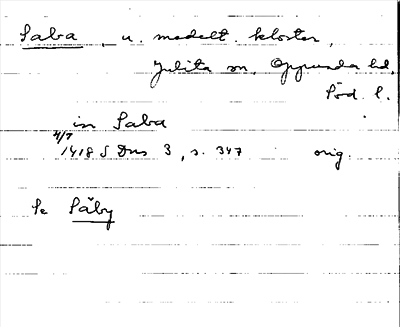 Saba, u. medelt. kloster,
Julita sn, Oppunda hd,
Söd. l.
in Saba
4/7
1418 S Dns 3, s. 347 orig.
Se Såby